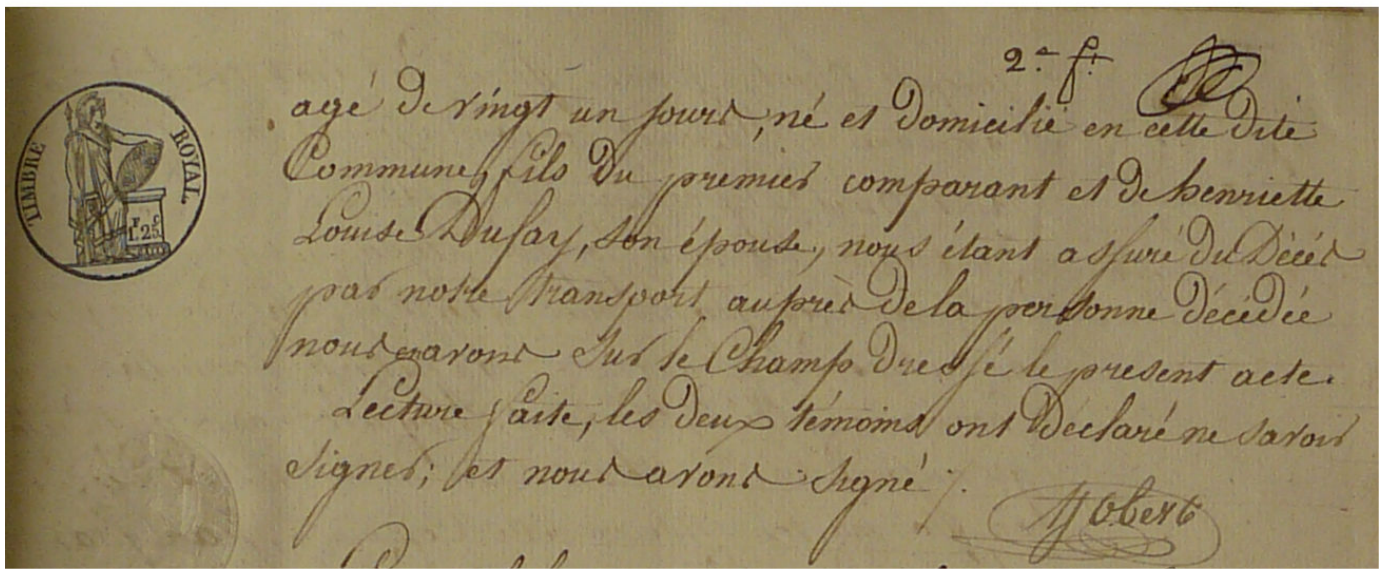 2.e f.t
TIMBRE ROYAL
F. C.
1. 25
agé de vingt un jours, né et domicilié en cette dite
Commune, fils du premier comparant et de henriette
Louise Dufay, son épouse, nous étant assuré du Décès
par notre transport auprès de la personne décédée
nous avons sur le Champ dressé le present acte.
Lecture faite, les deux témoins ont déclaré ne savoir
signer; et nous avons signé